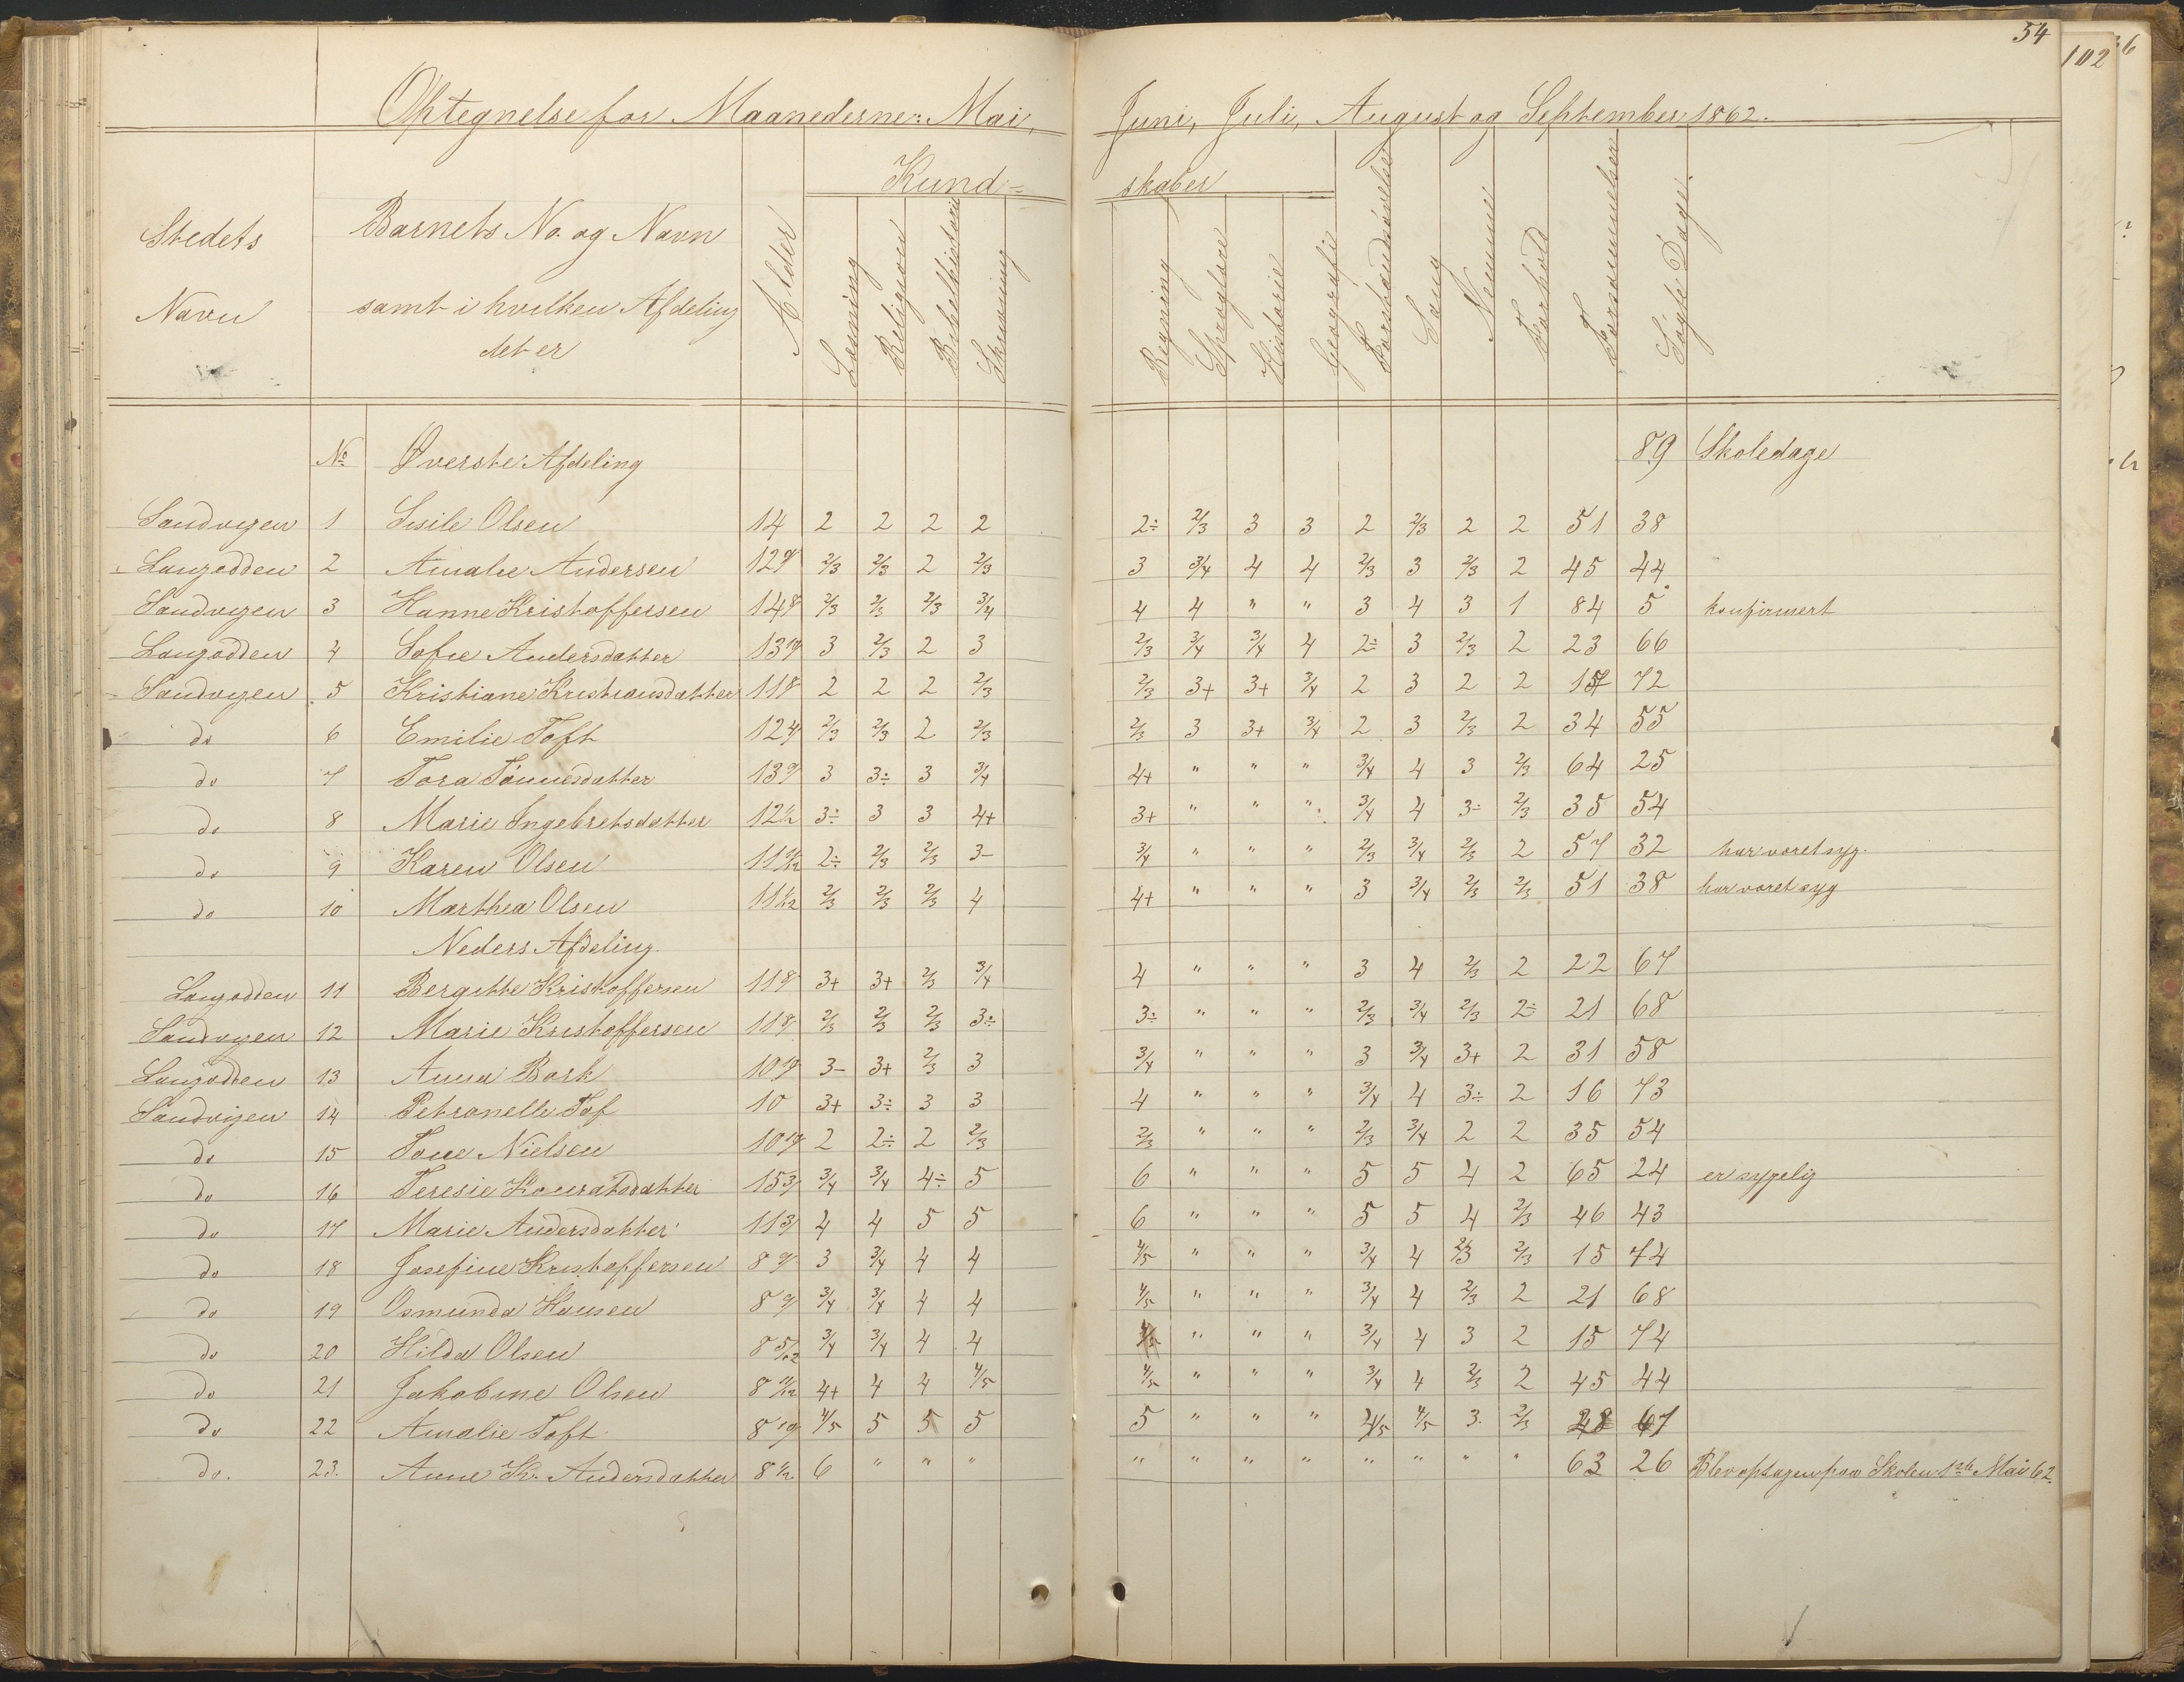 54
102
6
Optegnelse for Maanederne: Mai, Juni, Juli, August og September 1862.
Stedets Navn
Barnets No. og Navn
samt i hvilken Afdeling
det er
Alder
Kundskaber
Læsning
Religion
Bibelhistorie
Skrivning
Regning
Sproglære
Historie
Geografi
Forstandsøvelse
Sang
Nemme
Forhold
Forsømmelser
Søgte Dage.
No Øverste Afdeling 89 Skoledage
Sandvigen 1 Sisile Olsen 14 2 2 2 2 2÷ 2/3 3 3 2 2/3 2 2 51 38
Langodden 2 Amalie Andersen 12 2/3 2/3 2 2/3 3 3/4 4 4 2/3 3 2/3 2 45 44
Sandvigen 3 Hanne Kristoffersen 14 2/3 2/3 2/3 3/4 4 4 " " 3 4 3 1 84 5 konfirmert
Langodden 4 Sofie Andersdatter 13 3 2/3 2 3 2/3 3/4 3/4 4 2÷ 3 2/3 2 23 66
Sandvigen 5 Kristiane Kristiansdatter 11 2 2 2 2/3 2/3 3+ 3+ 3/4 2 3 2 2 17 72
do 6 Emilie Toft 12 2/3 2/3 2 2/3 2/3 3 3+ 3/4 2 3 2/3 2 34 55
do 7 Tora Tønnesdatter 13 3 3÷ 3 3/4 4+ " " " 3/4 4 3 2/3 64 25
do 8 Marie Ingebretsdatter 12 3÷ 3 3 4+ 3+ " " " 3/4 4 3÷ 2/3 35 54
do 9 Karen Olsen 11 2÷ 2/3 2/3 3- 3/4 " " " 2/3 3/4 2/3 2 57 32 har været syg.
do 10 Marthea Olsen 11 2/3 2/3 2/3 4 4+ " " " 3 3/4 2/3 2/3 51 38 har været syg
Neders Afdeling.
Langodden 11 Bergitte Kristoffersen 11 3+ 3+ 2/3 3/4 4 " " " 3 4 2/3 2 22 67
Sandvigen 12 Marie Kristoffersen 11 2/3 2/3 2/3 3÷ 3÷ " " " 2/3 3/4 2/3 2÷ 21 68
Langodden 13 Anna Bork 10 3- 3+ 2/3 3 3/4 " " " 3 3/4 3+ 2 31 58
Sandvigen 14 Petronelle Tof 10 3+ 3÷ 3 3 4 " " " 3/4 4 3÷ 2 16 73
do 15 Tone Nielsen 10 2 2÷ 2 2/3 2/3 " " " 2/3 3/4 2 2 35 54
do 16 Teresie Konratsdatter 15 3/4 3/4 4÷ 5 6 " " " 5 5 4 2 65 24 er sygelig
do 17 Marie Andersdatter 11 4 4 5 5 6 " " " 5 5 4 2/3 46 43
do 18 Josefine Kristoffersen 8 3 3/4 4 4 4/5 " " " 3/4 4 2/3 2/3 15 74
do 19 Osmunda Hansen 8 3/4 3/4 4 4 4/5 " " " 3/4 4 2/3 2 21 68
do 20 Hilda Olsen 8 5/12 3/4 3/4 4 4 4/5 " " " 3/4 4 3 2 15 74
do 21 Jakobine Olsen 8 11/12 4+ 4 4 4/5 4/5 " " " 3/4 4 2/3 2 45 44
do 22 Amalie Toft 8 4/5 5 5 5 5 " " " 4/5 4/5 3. 2/3 28 61
do. 23. Anne K. Andersdatter 8 6 " " " " " " " " " " " 63 26 Blev optagen paa Skolen 1ste Mai 62.